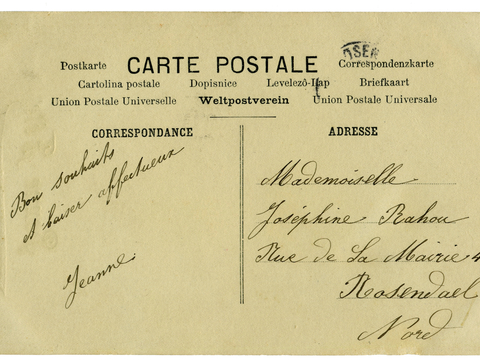 OSEN
Postkarte CARTE POSTALE Correspondenzkarte
Cartolina postale Dopisnice Levelezö-lap Briefkaart
Union Postale Universelle Weltpostverein Union Postale Universale
CORRESPONDANCE
Bon souhaits
et baiser affectueux
Jeanne.
ADRESSE
Mademoiselle
Joséphine Rahou
Rue de La Mairie 4
Rosendael
Nord